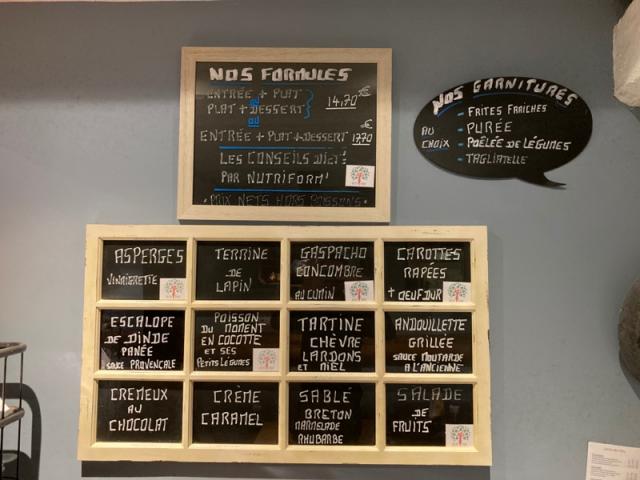 NOS FORMULES
ENTRÉE + PLAT
ou
PLAT + DESSERT
14,70 €
ou
ENTRÉE + PLAT + DESSERT 17,70 €
LES CONSEILS DIET :
PAR NUTRIFORM'
PRIX NETS HORS BOISSONS
NOS GARNITURES
AU CHOIX
- FRITES FRAICHES
- PURÉE
- POÊLÉE DE LÉGUMES
- TAGLIATELLE
ASPERGES
VINAIGRETTE
TERRINE
DE
LAPIN
GASPACHO
CONCOMBRE
AU CUMIN
CAROTTES
RAPÉES
+ OEUF DUR
ESCALOPE
DE DINDE
PANÉE
SAUCE PROVENCALE
POISSON
DU MOMENT
EN COCOTTE
ET SES
PETITS LÉGUMES
TARTINE
CHÈVRE
LARDONS
ET MIEL
ANDOUILLETTE
GRILLÉE
SAUCE MOUTARDE
A L'ANCIENNE
CREMEUX
AU
CHOCOLAT
CRÈME
CARAMEL
SABLÉ
BRETON
MARMELADE
RHUBARBE
SALADE
DE
FRUITS